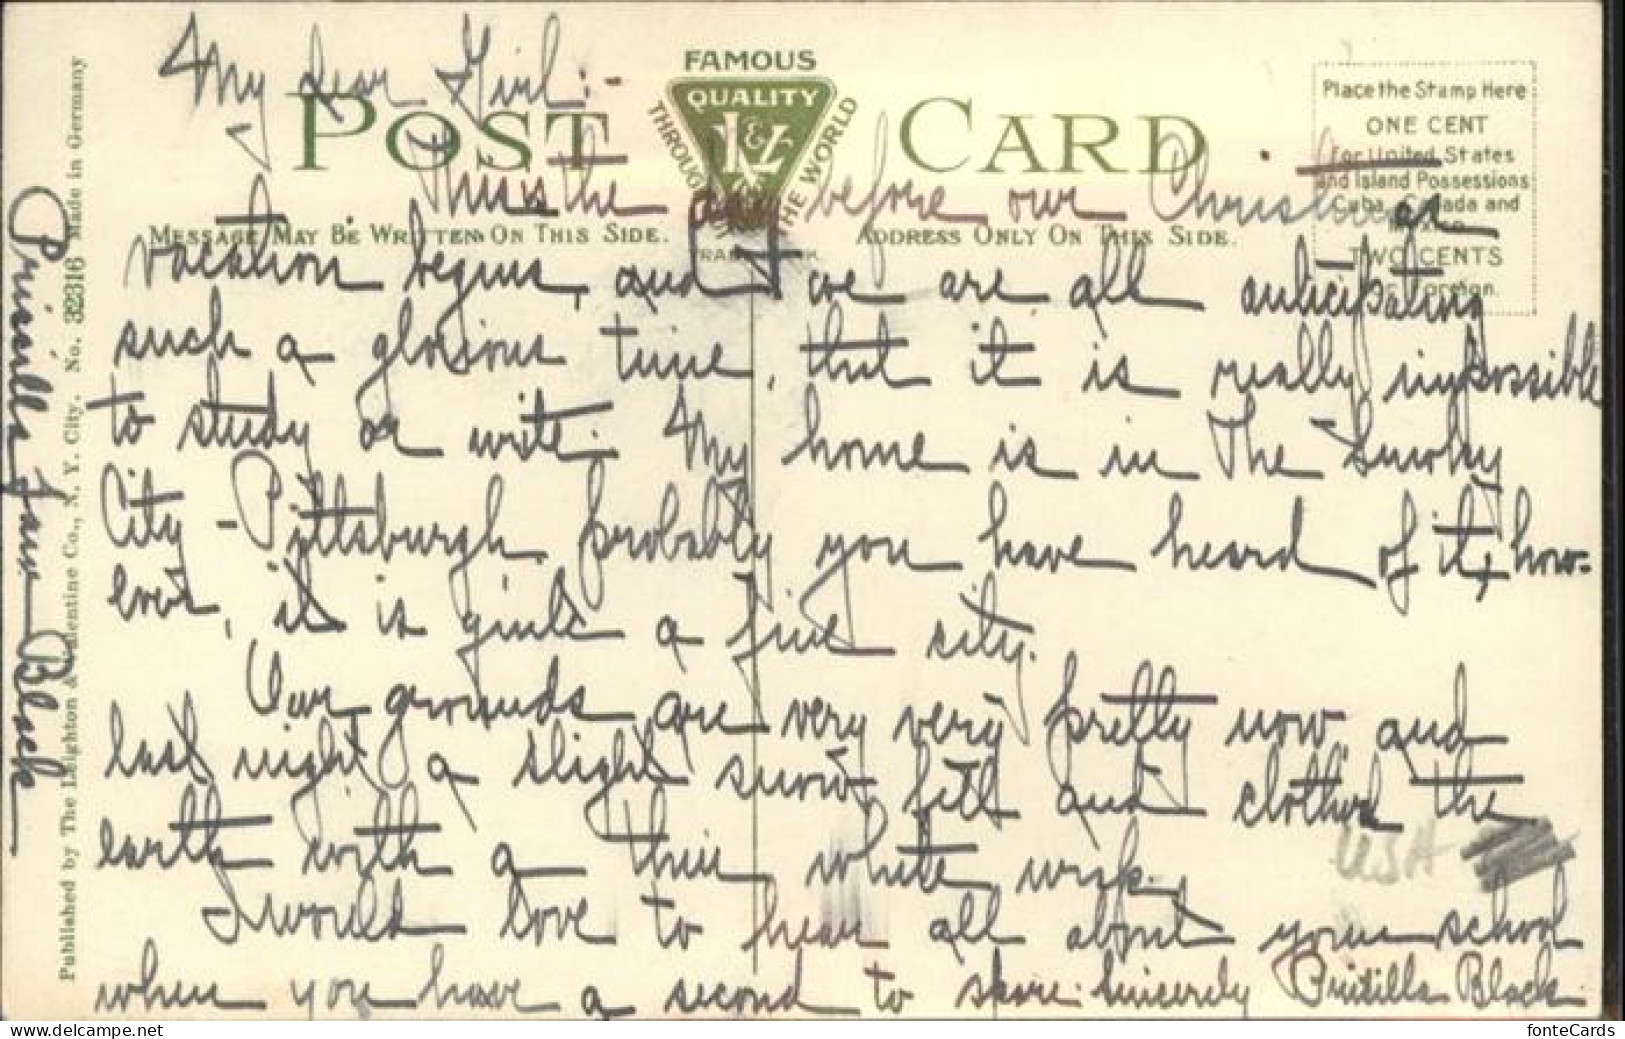 My dear Girl:-
FAMOUS
QUALITY
THROUGHOUT THE WORLD
POST CARD
Place the Stamp Here
ONE CENT
For United States
and Island Possessions
Cuba, Canada and
Mexico
TWO CENTS
For Foreign.
This is the day before our Christmas
MESSAGE MAY BE WRITTEN ON THIS SIDE.
TRADE MARK
ADDRESS ONLY ON THIS SIDE.
vacation begins, and we are all anticipating
such a glorious time, that it is really impossible
to study or write. My home is in The Smoky
City - Pittsburgh. Probably you have heard of it, how-
ever, it is quite a fine city.
Our grounds are very very pretty now and
last night a slight snow fell and clothed the
earth with a thin white wrap.
I would love to hear all about your school
when you have a second to spare. Sincerely Priscilla Black.
USA
Priscilla Black
Published by The Leighton & Valentine Co., N. Y. City. No. 32316 Made in Germany
www.delcampe.net
fonteCards